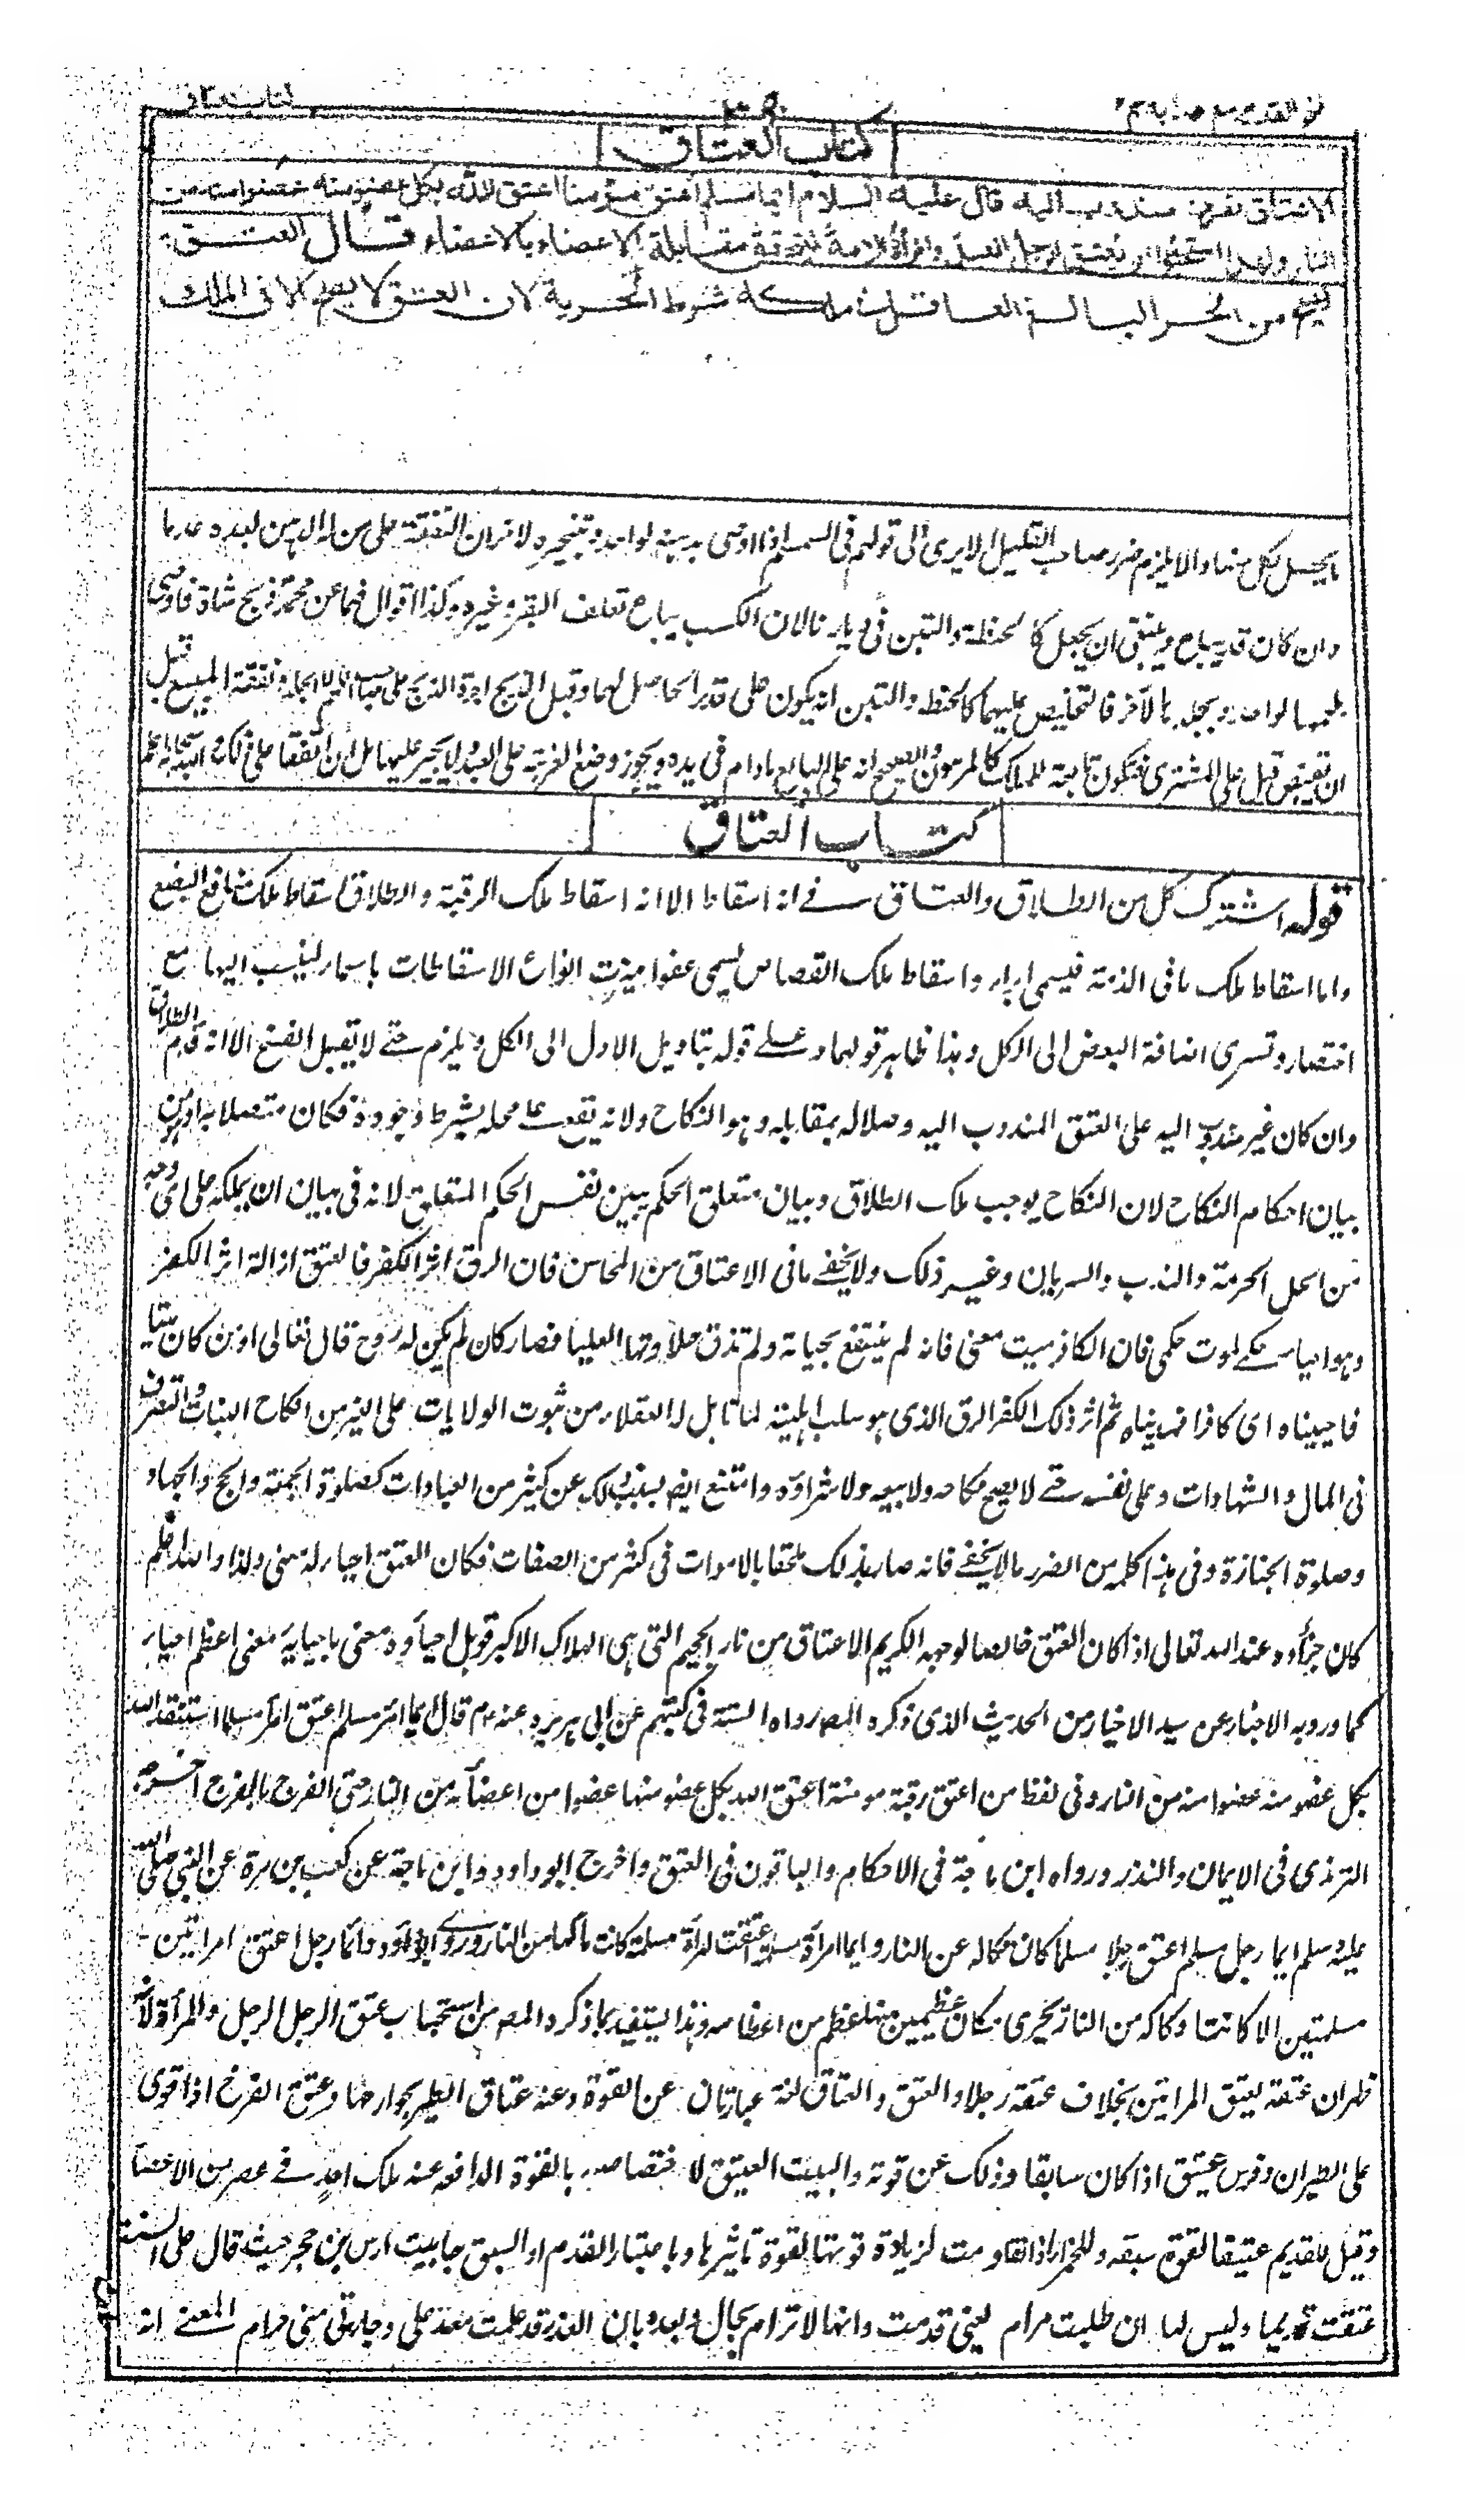 كتاب العتاق
الاعتاق تصرف مندوب اليه قال عليه السلام ايما مسلم اعتق مؤمنا اعتق الله بكل عضو منه عضوا منه من
النار ولهذا استحبوا ان يعتق الرجل العبد والمرأة الامة ليتحقق مقابلة الاعضاء بالاعضاء قال العتق
يصح من الحر البالغ العاقل في ملكه شرط الحرية لان العتق لا يصح الا في الملك
ما يحصل لكل منهما والا يلزم ضرر صاحب القليل الا يرى الى قولهم في السمسم اذا اوصى بدهنه لواحد وبثجيره لآخر ان النفقة على من له الدهن لعده عدما
وان كان قد يباع وينبغي ان يجعل كالحنظة والتبن في ديارنا لان الكسب يباع تعلف البقر وغيره وكذا اقوال فيما عن محمد ذبح شاة فاوصى
بلحمها لواحد وبجلدها لآخر فالتخليص عليهما كالحنطة والتبن انه يكون على قدر الحاصل لهما وقبل الذبح اجرة الذبح على صاحب اللحم لا الجلد ونفقة المبيع قبل
ان يقبض قيل على المشترى فتكون تابعة للملك كالمرهون والصحيح انه على البائع مادام في يده ويجوز وضع الضريبة على العبد ولا يجبر عليها بل ان اتفقا على ذلك والله سبحانه اعلم
كتاب العتاق
قوله اشترك كل من الطلاق والعتاق في انه اسقاط الا انه اسقاط ملك الرقبة والطلاق اسقاط ملك منافع البضع
واما اسقاط ملك ما في الذمة فيسمى ابراء واسقاط ملك القصاص يسمى عفوا ميزت انواع الاسقاطات باسماء لينسب اليها مع
اختصار وتسرى اضافة البعض الى الكل وهذا ظاهر قولهما وعلى قوله بتاويل الاول الى الكل ويلزم حتى لا يقبل الفسخ الا انه قدم الطلاق
وان كان غير مندوب اليه على العتق المندوب اليه وصلا له بمقابله وهو النكاح ولانه يقع على محله بشرط وجوده فكان متصلا به او هو من
بيان احكام النكاح لان النكاح يوجب ملك الطلاق وبيان متعلق الحكم يبين نفس الحكم المتعلق لانه في بيان ان يملكه على اى وجه
من الحل الحرمة والندب والسريان وغير ذلك ولا يخفى ما في الاعتاق من المحاسن فان الرق اثر الكفر فالعتق ازالة اثر الكفر
وهو احياء حكمى لموت حكمى فان الكافر ميت معنى فانه لم ينتفع بحياته ولم تذق حلاوتها العليا فصار كان لم يكن له روح قال تعالى او من كان ميتا
فاحييناه اى كافرا فهديناه ثم اثر ذلك الكفر الرق الذى هو سلب اهليته لما تاهل له العقلاء من ثبوت الولايات على الغير من انكاح البنات والتصرف
في المال والشهادات وعلى نفسه حتى لا يصح نكاحه ولا بيعه ولا شراؤه وامتنع ايضا بسبب ذلك عن كثير من العبادات كصلوة الجمعة والحج والجهاد
وصلوة الجنازة وفي هذا كله من الضرر ما لا يخفى فانه صار بذلك ملحقا بالاموات في كثير من الصفات فكان العتق احياء له معنى ولذا والله اعلم
كان جزاؤه عند الله تعالى اذا كان العتق خالصا لوجهه الكريم الاعتاق من نار الجحيم التى هى الهلاك الاكبر قوبل احياؤه معنى باحيائه معنى اعظم احياء
كما ورد به الاخبار عن سيد الاخيار من الحديث الذى ذكره المصـ رواه الستة في كتبهم عن ابى هريرة عنه عم قال ايما امرء مسلم اعتق امرأ مسلما استنقذ الله
بكل عضو منه عضوا منه من النار وفي لفظ من اعتق رقبة مومنة اعتق الله بكل عضو منها عضوا من اعضائه من النار حتى الفرج بالفرج اخرجه
الترمذى في الايمان والنذور ورواه ابن ماجة في الاحكام والباقون في العتق واخرج ابو داود وابن ماجة عن كعب بن مرة عن النبي صلى الله
عليه وسلم ايما رجل مسلم اعتق رجلا مسلما كان فكاكه من النار وايما امرأة مسلمة اعتقت امرأة مسلمة كانت فكاكها من النار وروى ابو داود وايما رجل اعتق امرأتين
مسلمتين الا كانتا فكاكه من النار يجزى مكان عظمين منهما عظم من اعظامه وهذا يستفيد بما ذكره المصـ من استحباب عتق الرجل الرجل والمرأة لانه
ظهر ان عتقه بعتق المرأتين بخلاف عتقه رجلا والعتق والعتاق لغة عبارتان عن القوة وعنه عتاق الطير بجوارحها وعتق الفرخ اذا قوى
على الطيران وفرس عتيق اذا كان سابقا وذلك عن قوته والبيت العتيق لاختصاصه بالقوة الدافعة عنه ملك احد في عصر من الاعصار
وقيل للقديم عتيقا لقوة سبقه وللخمر اذا تقادمت لزيادة قوتها لقوة تاثيرها وباعتبار القدم او السبق جا بيت اوس بن حجر حيث قال على الية
عتقت قديما وليس لها ان طلبت مرام يعنى قدمت وانها لا ترام بحال وبعده بان الغدر قد علمت معد على وجارتى منى حرام المعنى انه